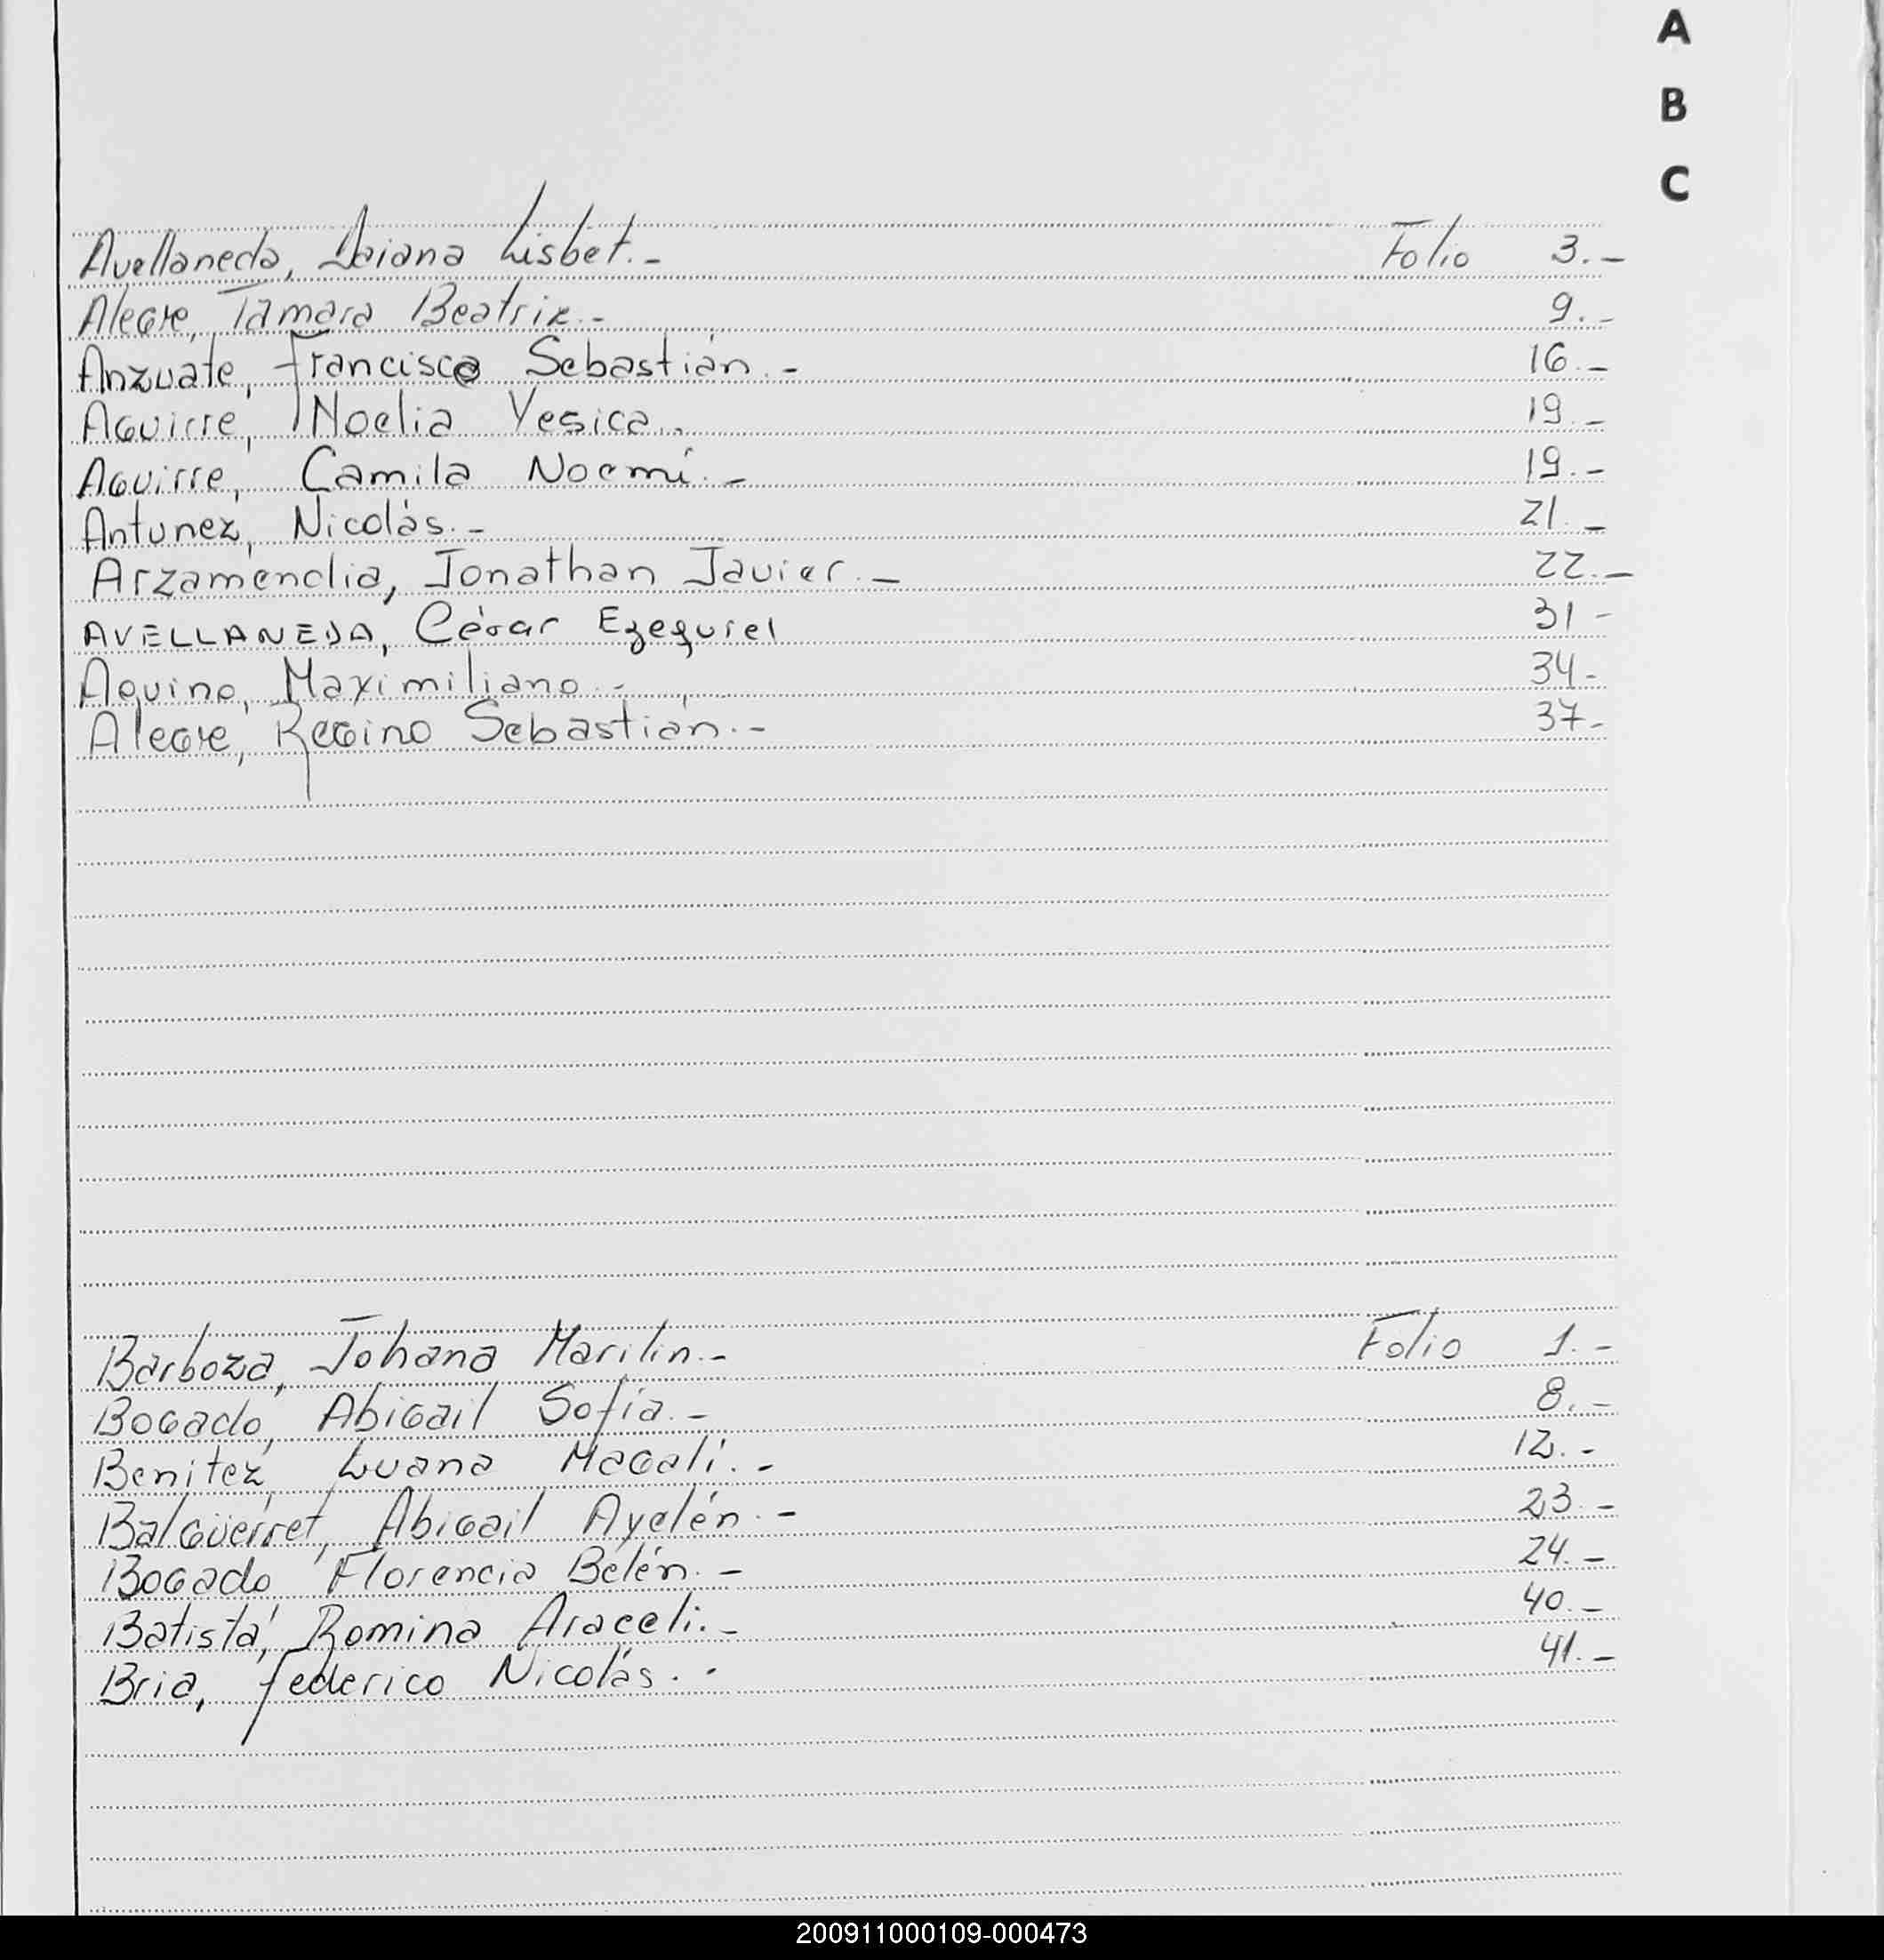 A
B
C
Avellaneda, Daiana Lisbet.- Folio 3.-
Alegre, Tamara Beatriz.- 9.-
Anzuate, Francisco Sebastián.- 16.-
Aguirre, Noelia Yesica.. 19.-
Aguirre, Camila Noemí.- 19.-
Antunez, Nicolás.- 21.-
Arzamendia, Jonathan Javier.- 22.-
AVELLANEDA, César Ezequiel 31-
Aquino, Maximiliano.- 34-
Alegre, Regino Sebastián.- 37-
Barboza, Johana Marilin.- Folio 1.-
Bogado, Abigail Sofía.- 8.-
Benitez, Luana Magalí.- 12.-
Balgüerret, Abigail Ayelén.- 23.-
Bogado, Florencia Belén.- 24.-
Batista, Romina Araceli.- 40.-
Bria, Federico Nicolás.- 41.-
200911000109-000473